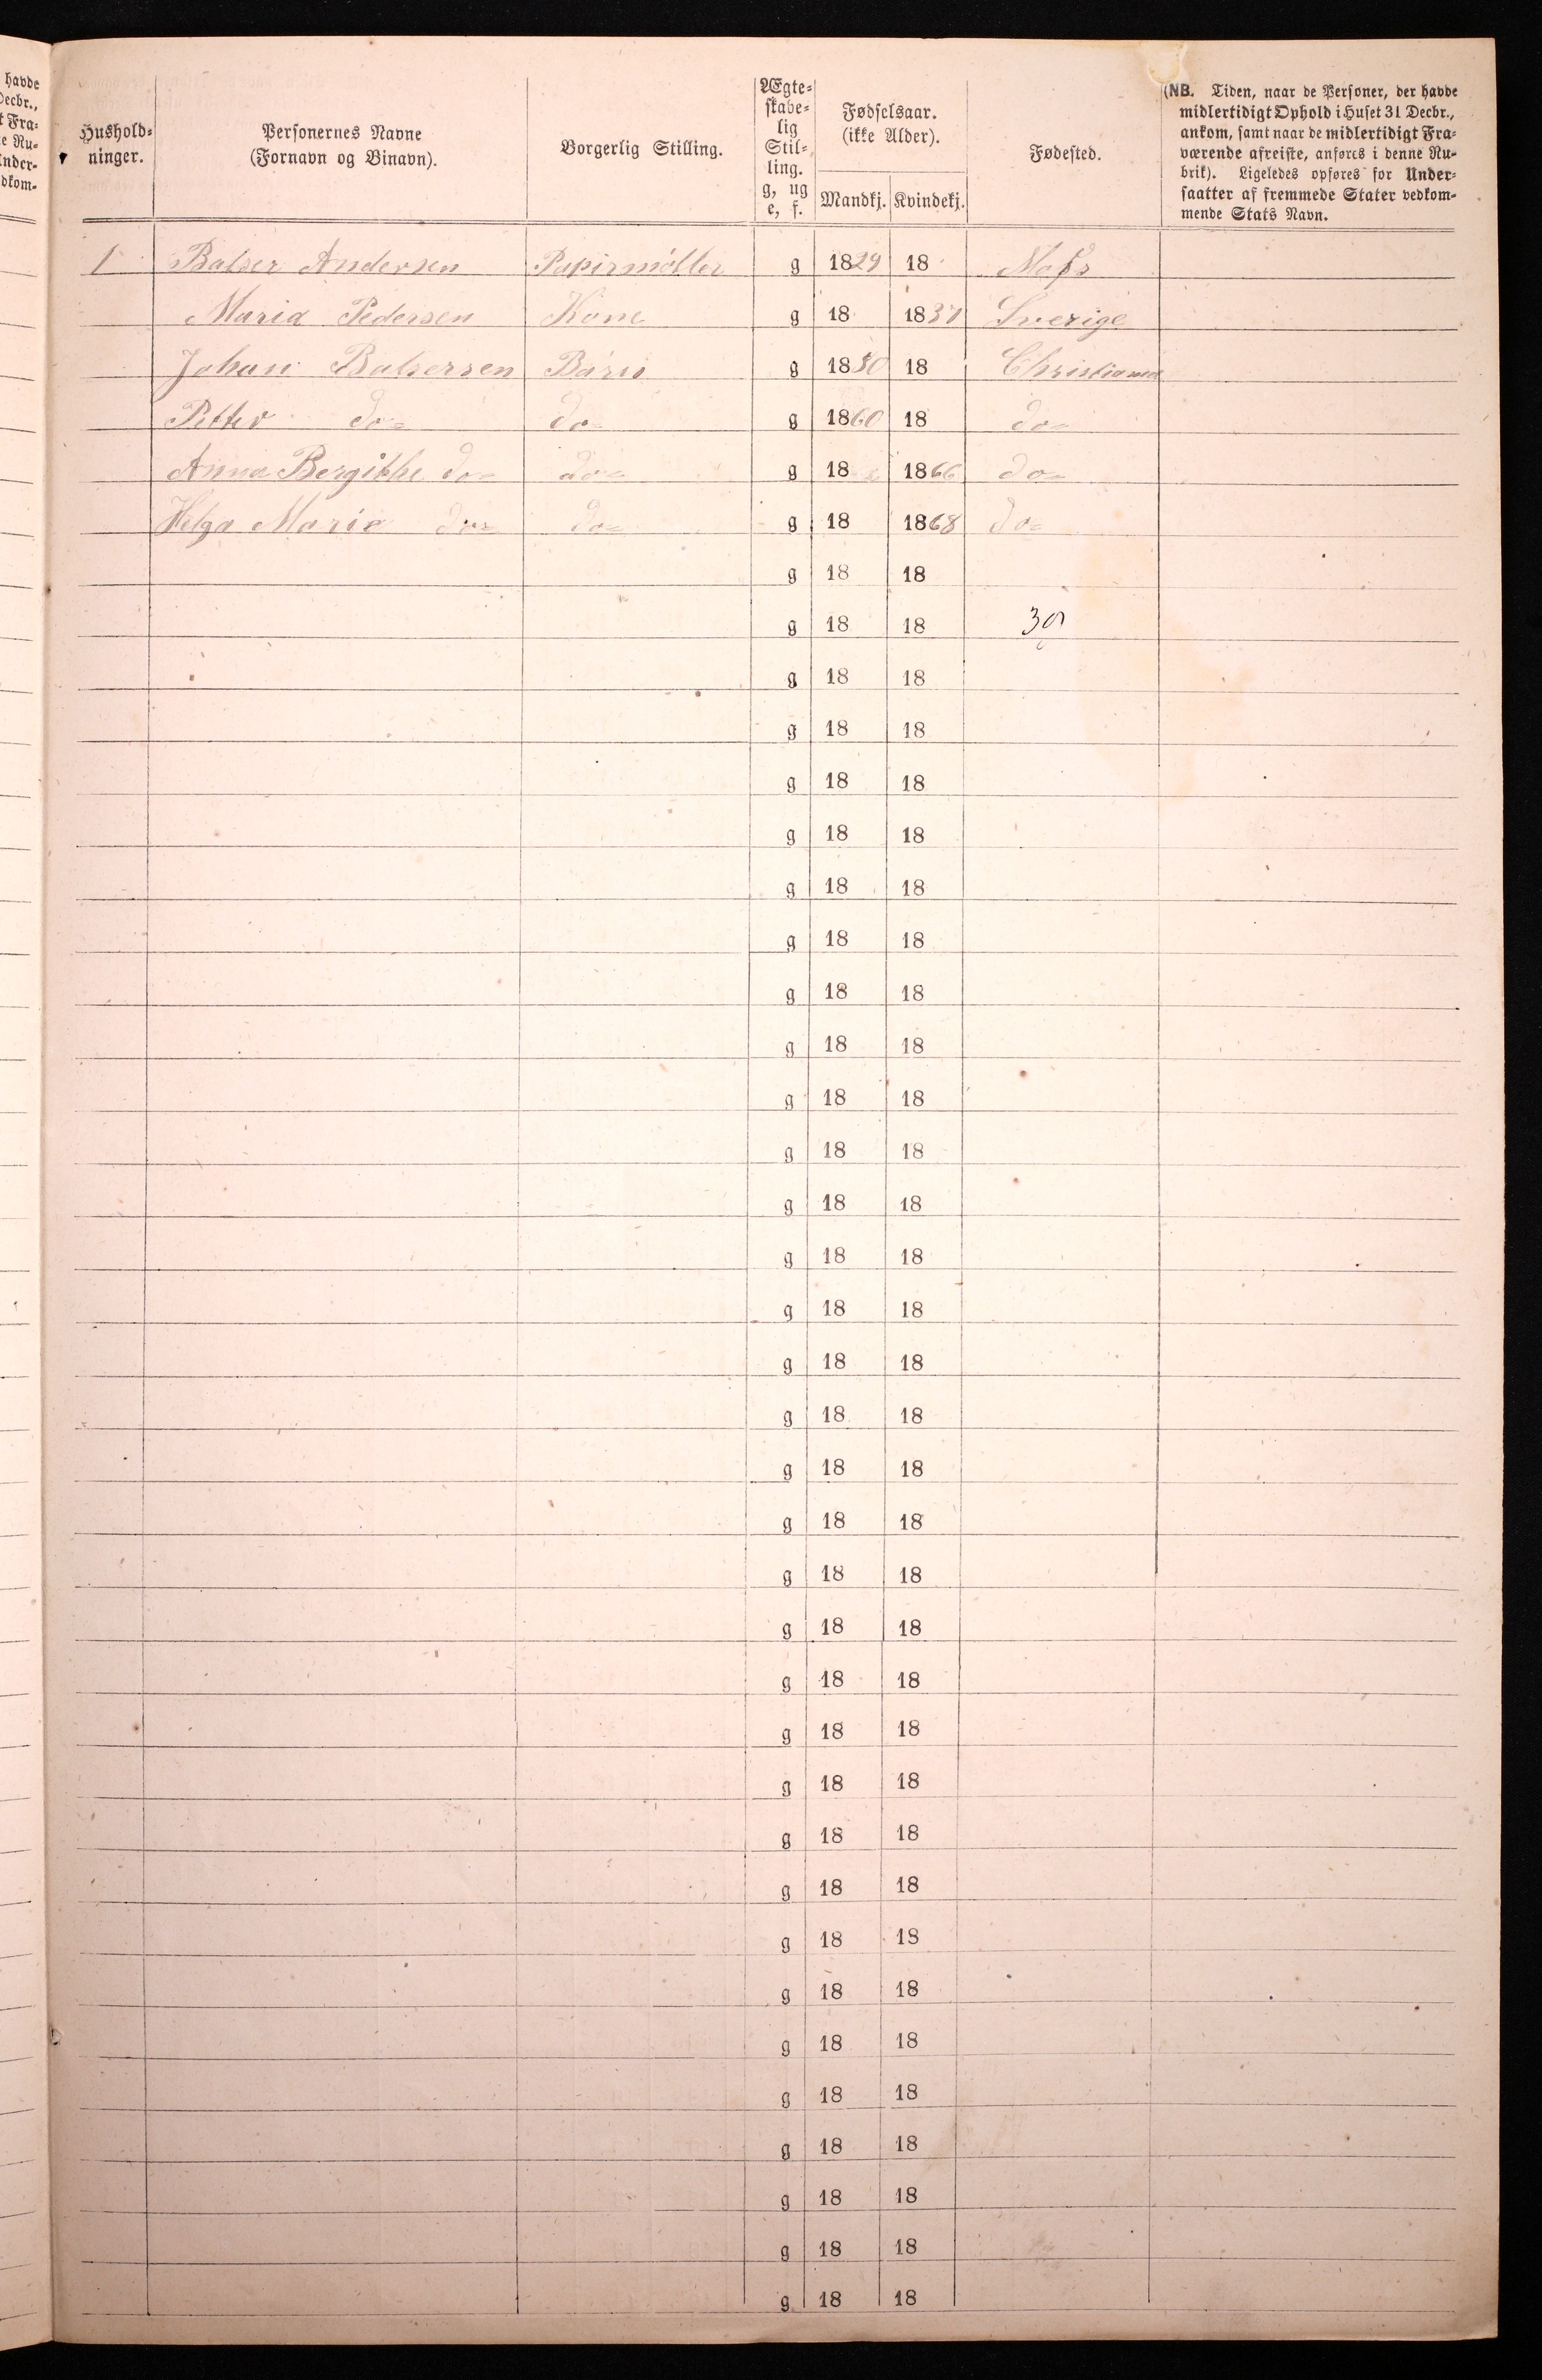 havde
Decbr.,
t Fra-
e Nu-
Under-
dkom-
Hushold-
ninger.
Personernes Navne
(Fornavn og Binavn).
Borgerlig Stilling.
Ægte-
skabe-
lig
Stil-
ling.
g, ug
e, f.
Fødselsaar.
(ikke Alder).
Mandkj. Kvindekj.
Fødested.
(NB. Tiden, naar de Personer, der havde
midlertidigt Ophold i Huset 31 Decbr.,
ankom, samt naar de midlertidigt Fra-
værende afreiste, anføres i denne Ru-
brik). Ligeledes opføres for Under-
saatter af fremmede Stater vedkom-
mende Stats Navn.
1 Balser Andersen Papirmöller g 1829 18 Moss
Maria Pedersen Kone g 18 1831 Sverige
Johan Balsersen Barn g 1850 18 Christiania
Petter do= do= g 1860 18 do=
Anna Bergithe do= do= g 18 1866 do=
Helga Maria do= do= g 18 1868 do=
g 18 18
g 18 18
g 18 18
g 18 18
g 18 18
g 18 18
g 18 18
g 18 18
g 18 18
g 18 18
g 18 18
g 18 18
g 18 18
g 18 18
g 18 18
g 18 18
g 18 18
g 18 18
g 18 18
g 18 18
g 18 18
g 18 18
g 18 18
g 18 18
g 18 18
g 18 18
g 18 18
g 18 18
g 18 18
g 18 18
g 18 18
g 18 18
g 18 18
g 18 18